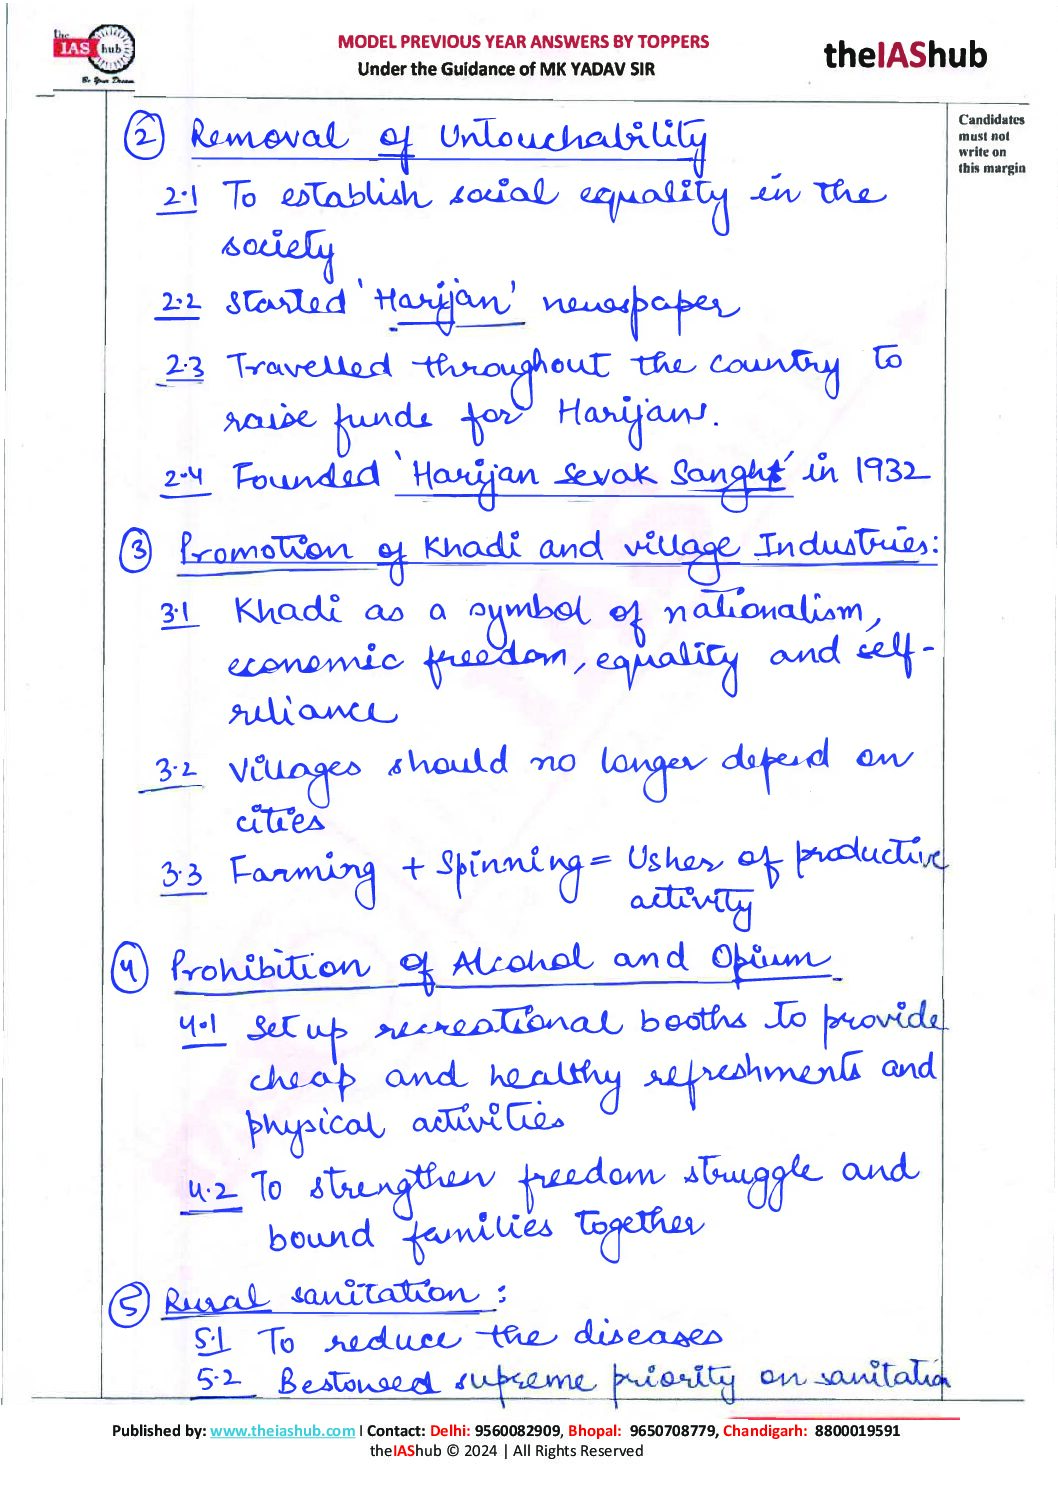 the
IAS hub
Be Your Dream
MODEL PREVIOUS YEAR ANSWERS BY TOPPERS
Under the Guidance of MK YADAV SIR
theIAShub
Candidates
must not
write on
this margin
② Removal of Untouchability
2.1 To establish social equality in the
society
2.2 Started 'Harijan' newspaper
2.3 Travelled throughout the country to
raise funds for Harijans.
2.4 Founded 'Harijan Sevak Sangh' in 1932
③ Promotion of Khadi and village Industries:
3.1 Khadi as a symbol of nationalism,
economic freedom, equality and self-
reliance
3.2 Villages should no longer depend on
cities
3.3 Farming + Spinning = Usher of productive
activity
④ Prohibition of Alcohol and Opium
4.1 Set up recreational booths to provide
cheap and healthy refreshments and
physical activities
4.2 To strengthen freedom struggle and
bound families together
⑤ Rural sanitation :
5.1 To reduce the diseases
5.2 Bestowed supreme priority on sanitation
Published by: www.theiashub.com I Contact: Delhi: 9560082909, Bhopal: 9650708779, Chandigarh: 8800019591
theIAShub © 2024 | All Rights Reserved